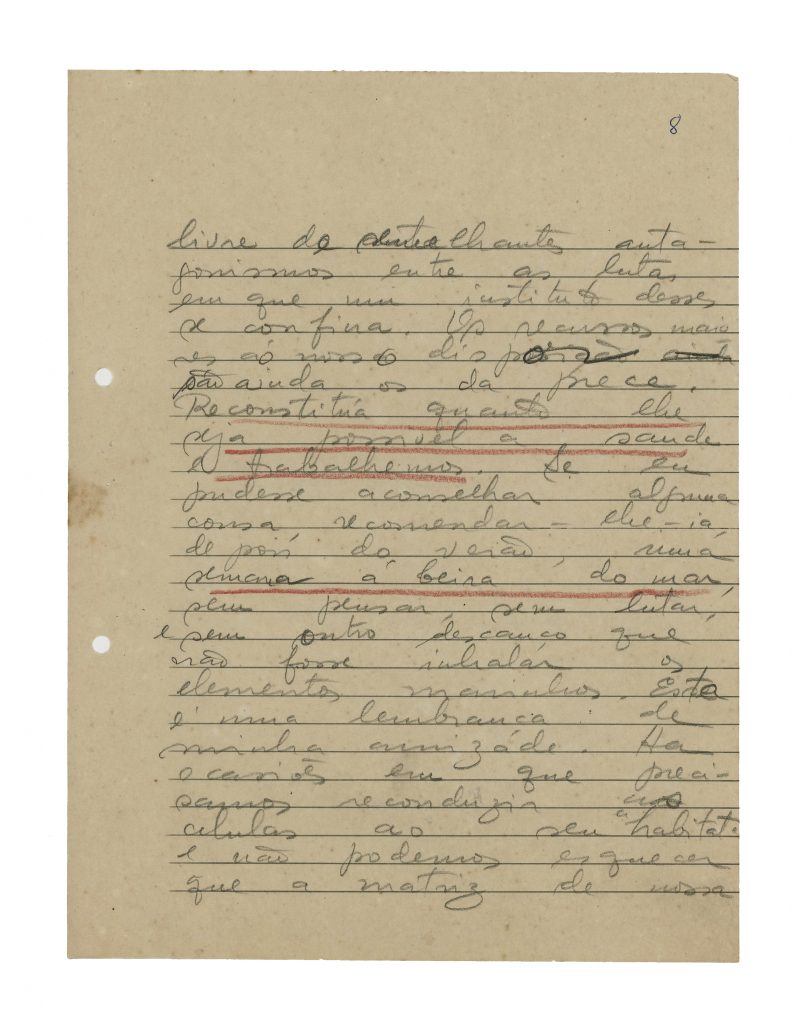 8
livre de semelhantes anta-
gonismos entre as lutas
em que um instituto desses
se confina. Os recursos maio
res ao nosso dispor
são ainda os da prece.
Reconstitúa quanto lhe
seja possivel a saude
e trabalhemos. Se eu
pudesse aconselhar alguma
cousa recomendar-lhe-ia,
depois do verão, uma
semana á beira do mar,
sem pensar, sem lutar,
e sem outro descanço que
não fosse inhalar os
elementos marinhos. Esta
é uma lembrança de
minha amizáde. Ha
ocasiões em que preci-
samos reconduzir as
celulas ao seu "habitat"
e não podemos esquecer
que a matriz de nossa